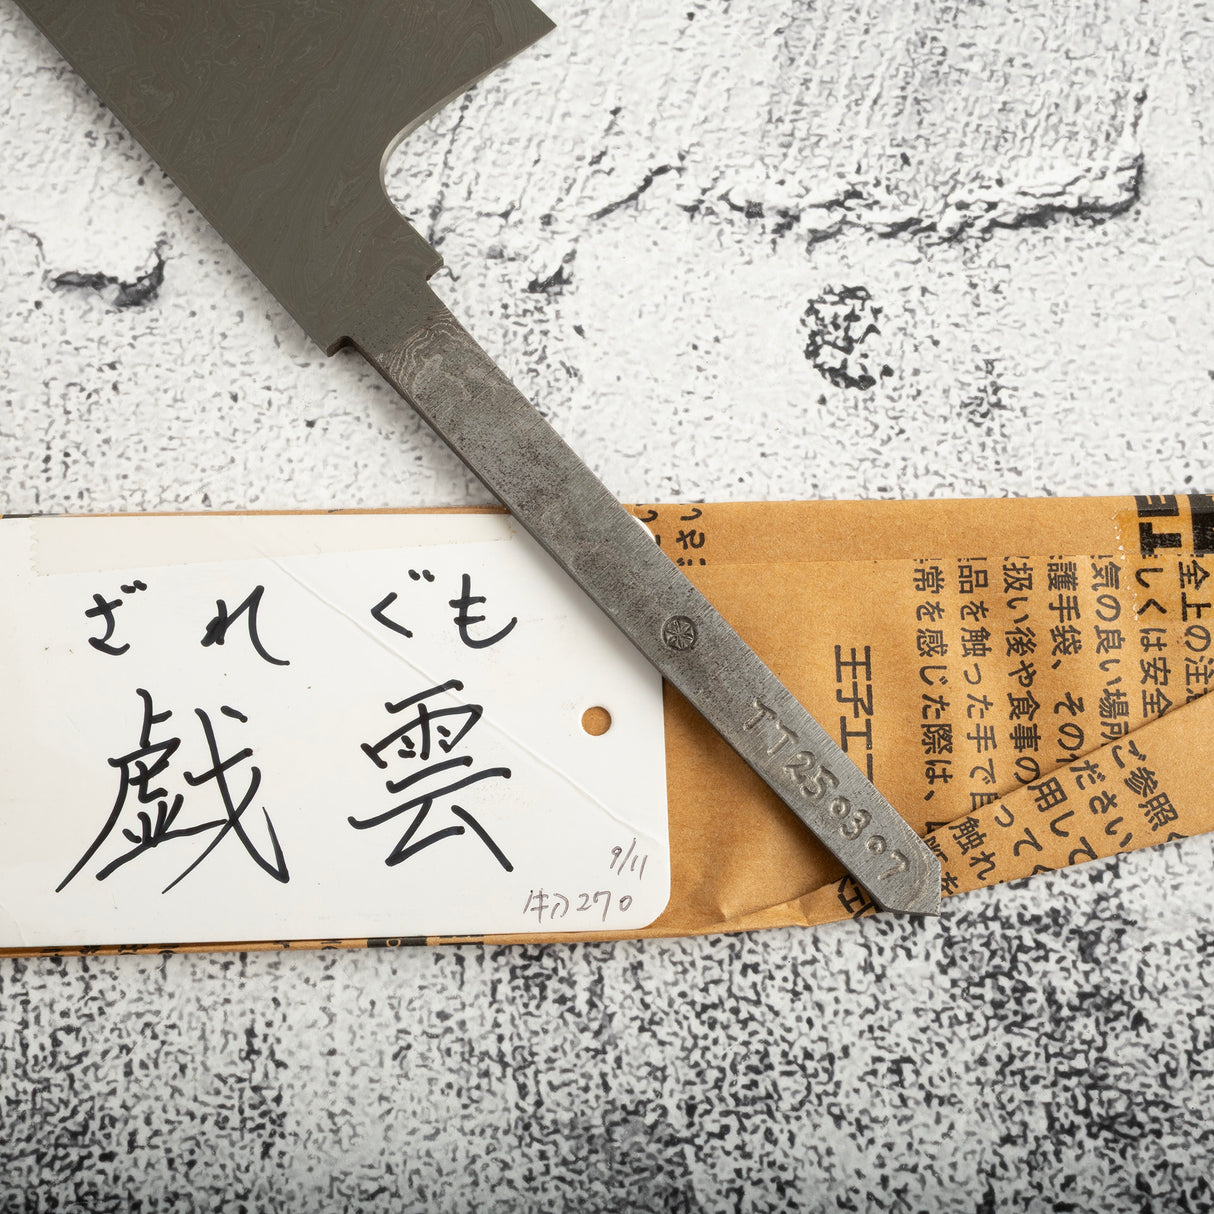 ざれ ぐも
戯雲
9/11
牛刀270
TT250307
王子工
全上の注
しくは安全
気の良い場所ご参照く
護手袋、その
ださい
扱い後や食事の
用して
品を触った手で目
常を感じた際は、
触れ
って